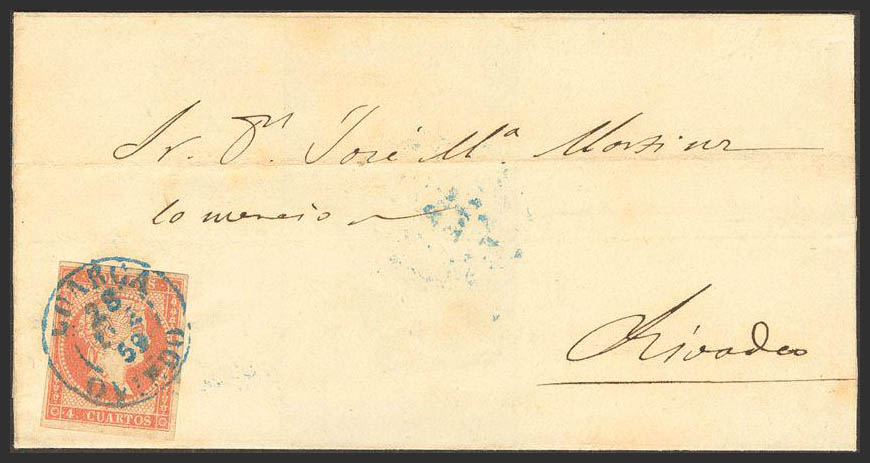 Sr. Dn José Mª
comercio
Rivadeo
LUARCA
28
59
OVIEDO
4 CUARTOS